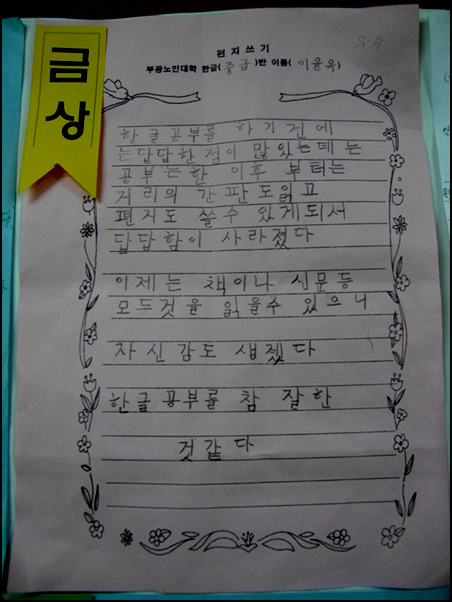 금상
우수
편지쓰기
부광노인대학 한글( 중급 )반 이름( 이윤옥 )
한글공부를 하기전에
는답답한 점이 많있는데는
공부는한 이후 부터는
거리의 간판도읽고
편지도 쓸수 있게되서
답답함이 사라졌다
이제는 책이나 신문등
모드것을 읽을수 있으니
자신감도 생겠다
한글공부를 참 잘한
것같다